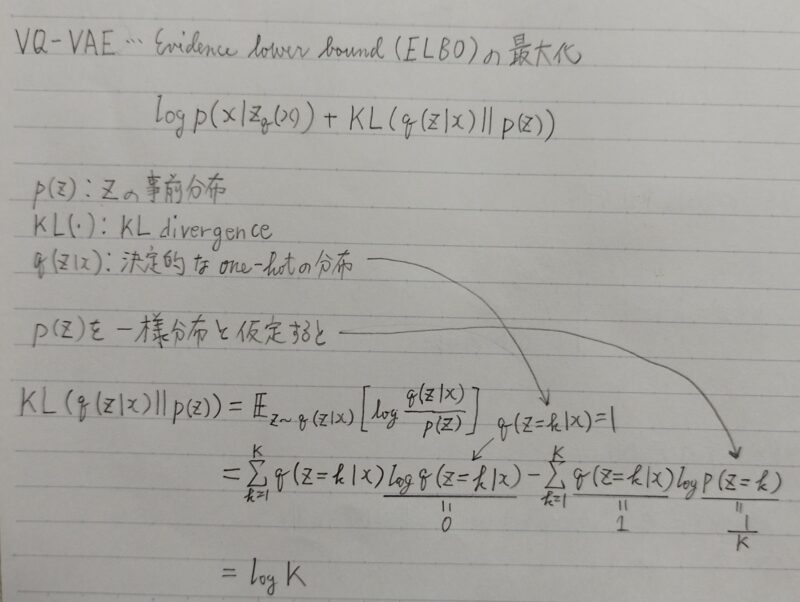 VQ-VAE … Evidence lower bound (ELBO)の最大化
log p(x|z_q(x)) + KL(q(z|x)||p(z))
p(z): zの事前分布
KL(·): KL divergence
q(z|x): 決定的なone-hotの分布
p(z)を一様分布と仮定すると
KL(q(z|x)||p(z)) = 𝔼_{z~q(z|x)} [log q(z|x)/p(z)] q(z=k|x)=1
= Σ_{k=1}^{K} q(z=k|x) log q(z=k|x) - Σ_{k=1}^{K} q(z=k|x) log p(z=k)
= 0 = 1 = 1/K
= log K